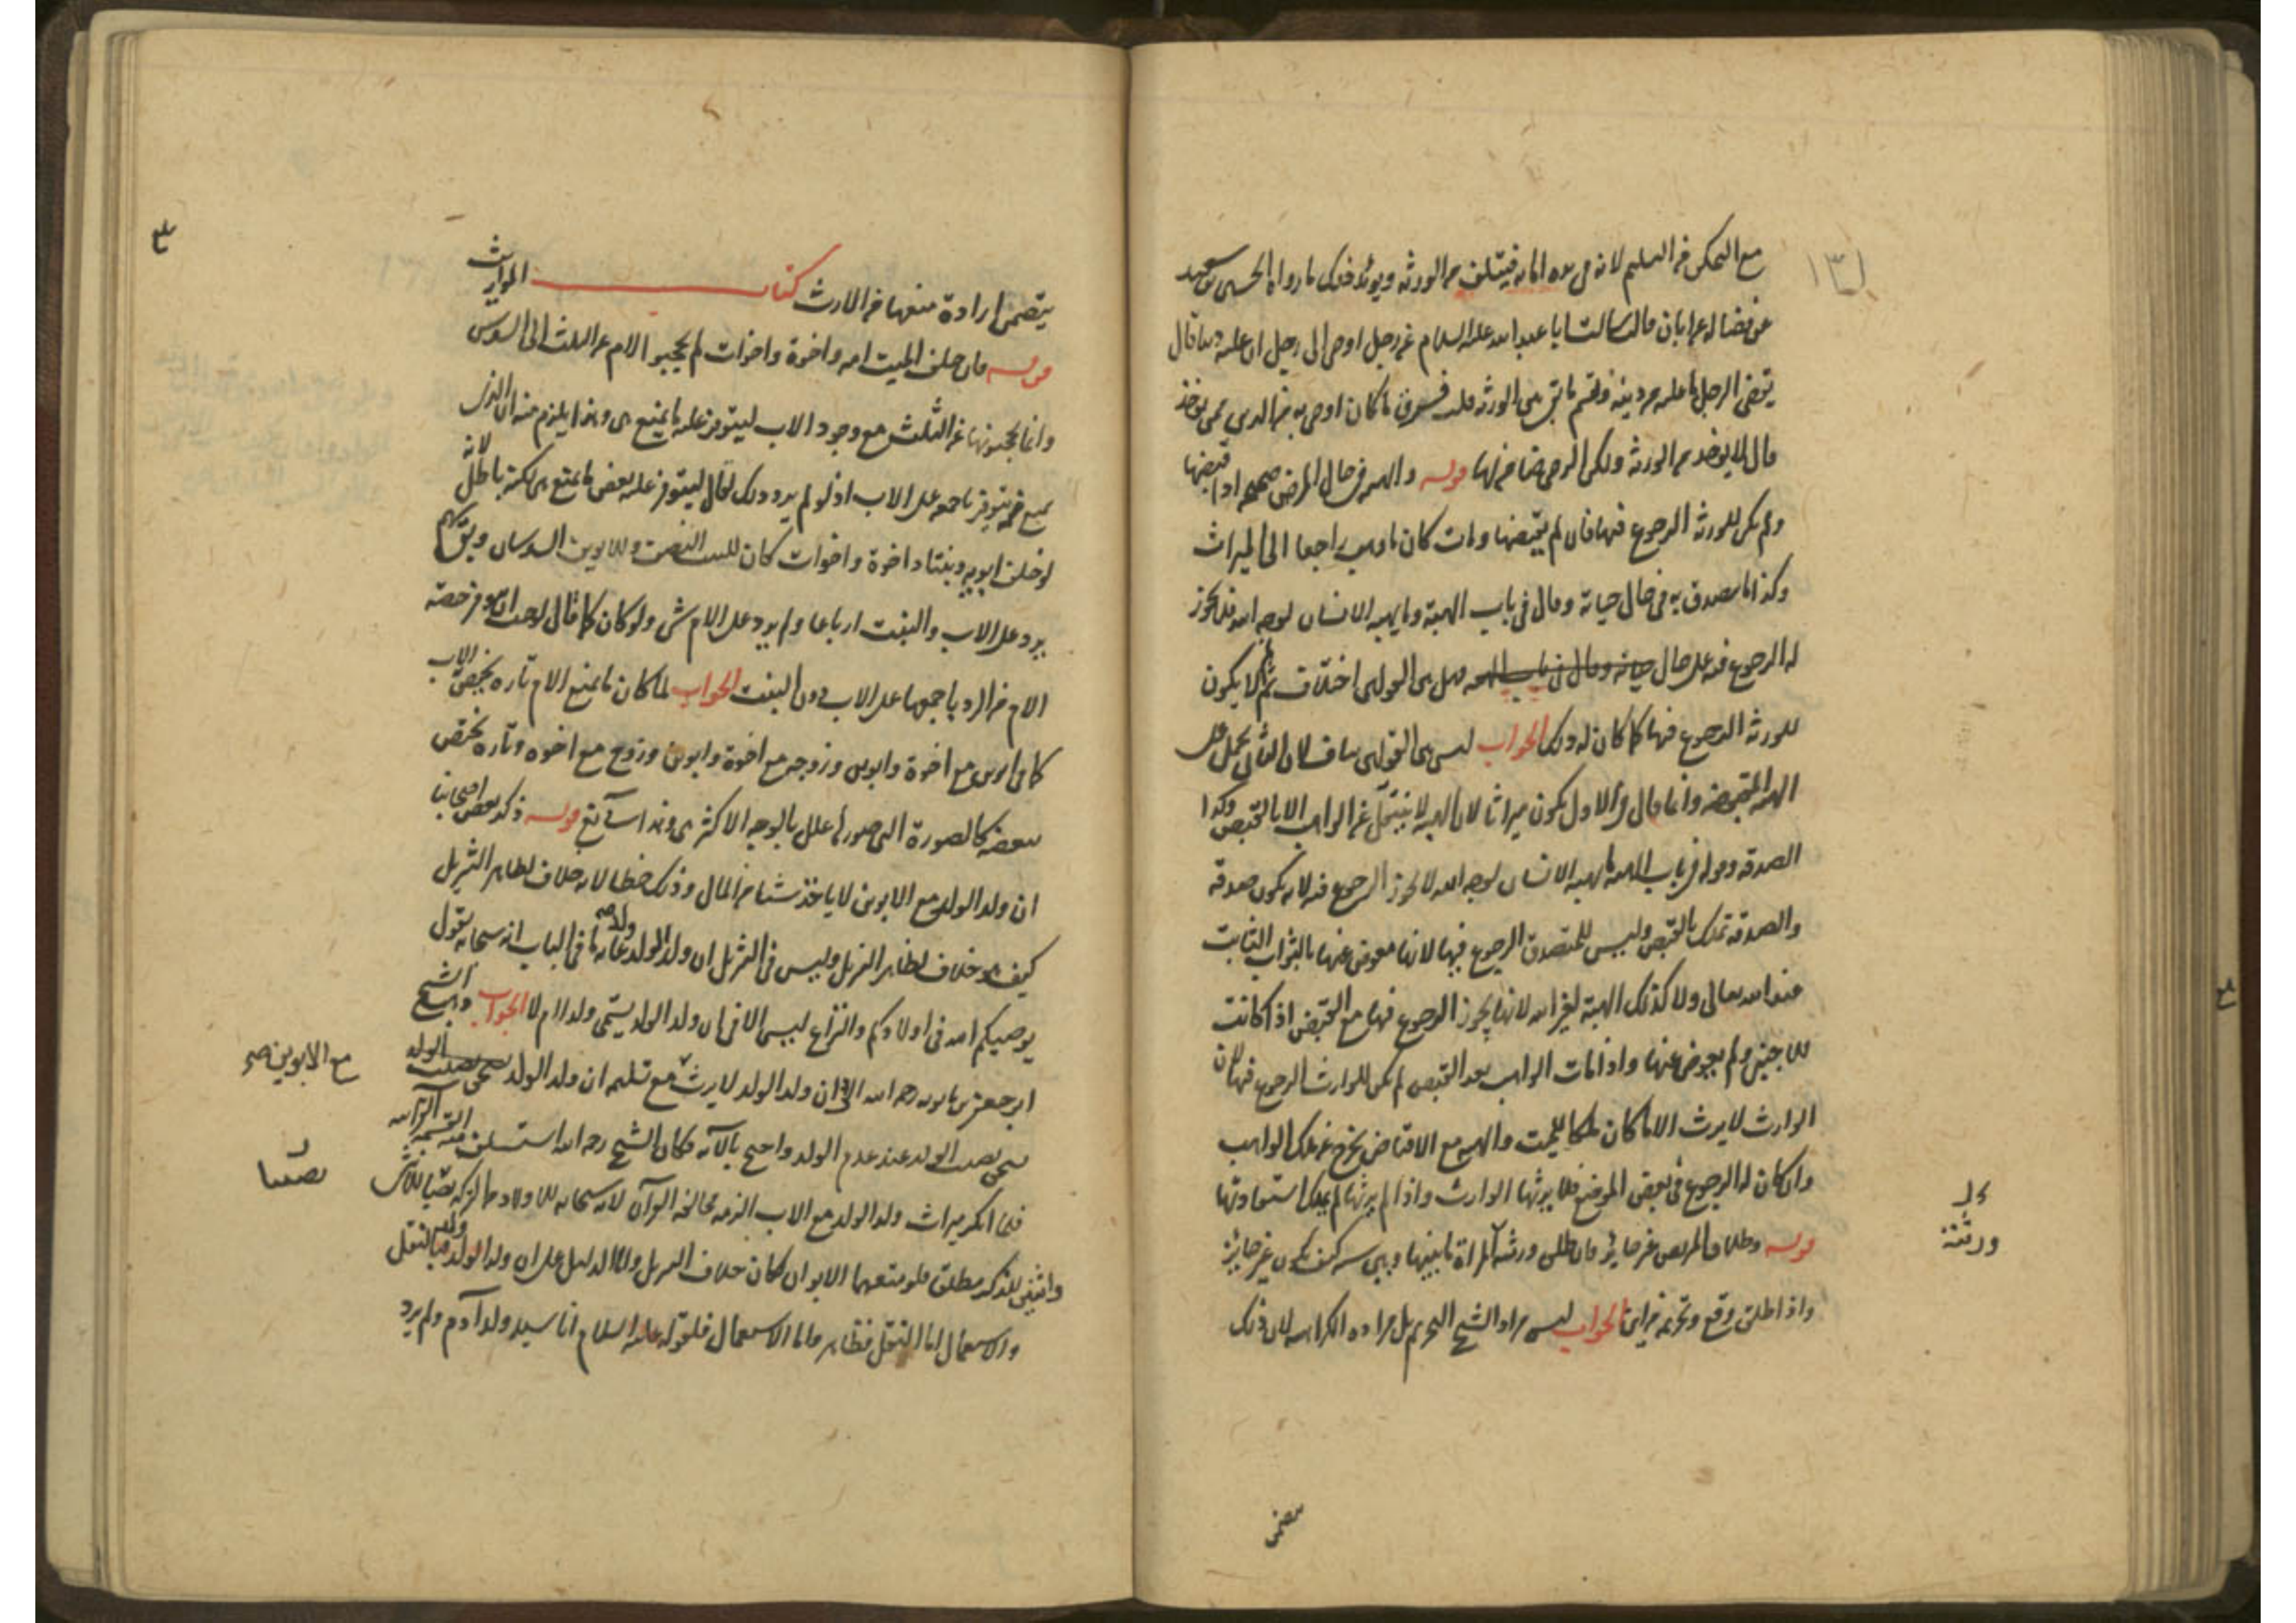 ١٣١
مع التمكن من التسليم لانه في يده امانة فيتلف من الورثة ويؤيد ذلك ما رواه الحسين بن سعيد
عن فضالة عن ابان قال سالت ابا عبد الله عليه السلام عن رجل اوصى الى رجل ان عليه دينا قال
يقضي الرجل ما عليه من دينه ويقسم ما بقي بين الورثة قلت فسرق ما كان اوصى به من الدين ممن يؤخذ
قال لا يؤخذ من الورثة ولكن الوصي ضامن لها قوله والهبة في حال المرض صحيحة اذا قبضها
ولم يكن للورثة الرجوع فيها فان لم يقبضها ومات كان ما وهب راجعا الى الميراث
وكذا ما يتصدق به في حال حياته وقال في باب الهبة وما يهبه الانسان لوجه الله فلا يجوز
له الرجوع فيه على حال حياته وقال في باب الهبة فهل بين القولين اختلاف ثم لم لا يكون
للورثة الرجوع فيها كما كان له ذلك الجواب ليس بين القولين تناف لان الثاني يحمل على
الهبة المقبوضة وانما قال في الاول يكون ميراثا لان الهبة لا ينتقل عن الواهب الا بالقبض وكذا
الصدقة وقوله في باب الهبة ما يهبه الانسان لوجه الله لا يجوز الرجوع فيه لانه يكون صدقة
والصدقة تملك بالقبض وليس للمتصدق الرجوع فيها لانها معوض عنها بالثواب الثابت
عند الله تعالى ولا كذلك الهبة لغير الله لانها يجوز الرجوع فيها مع القبض اذا كانت
للاجنبي ولم يعوض عنها واذا مات الواهب بعد القبض لم يكن للوارث الرجوع فيها لان
الوارث لا يرث الا ما كان ملكا للميت والهبة مع الاقباض يخرج عن ملك الواهب
وان كان له الرجوع في بعض المواضع فلا يرثها الوارث واذا لم يرثها لم يملك استعادتها
قوله وطلاق المريض غير جائز فان طلق ورثته المراة ما بينها وبين سنة كيف يكون غير جائز
واذا طلق وقع وتحريمه من اين الجواب ليس مراد الشيخ التحريم بل مراده الكراهية لان ذلك
ورثته
يتضمن ارادة منعها من الارث كتاب المواريث
قوله فان خلف الميت امه واخوة واخوات لم يحجبوا الام عن الثلث الى السدس
وانما يحجبونها عن الثلث مع وجود الاب ليتوفر عليه ما يمنع هي وهذا يلزم منه ان الذي
يمنع منه يتوفر باجمعه على الاب اذ لو لم يرد ذلك لقال ليتوفر عليه بعض ما يمنع هي لكنه باطل لانه
لو خلف ابويه وبنتا واخوة واخوات كان للبنت النصف وللابوين السدسان ويبقى سهم
يرد على الاب والبنت ارباعا ولم يرد على الام شيء ولو كان كما قال لوجب ان يوفر حصة
الام من الرد باجمعها على الاب دون البنت الجواب لما كان ما يمنع الام تارة يختص الاب
كما في ابوين مع اخوة وابوين وزوجة مع اخوة وابوين وزوج مع اخوة وتارة يختص
ببعضه كالصورة التي صورها علل بالوجه الاكثري وهذا سائغ قوله ذكر بعض اصحابنا
ان ولد الولد مع الابوين لا ياخذ شيئا من المال وذلك خطا لانه خلاف لظاهر التنزيل
كيف هو خلاف لظاهر التنزيل وليس في التنزيل ان ولد الولد ولد غاية ما في الباب انه سبحانه يقول
يوصيكم الله في اولادكم والنزاع ليس الا في ان ولد الولد يسمى ولدا ام لا الجواب ذهب الشيخ
ابو جعفر بن بابويه رحمه الله الى ان ولد الولد لا يرث مع تسليمه ان ولد الولد
يستحق نصيب الولد عند عدم الولد واحتج بالآية وكان الشيخ رحمه الله استسلف منه
فلما انكر ميراث ولد الولد مع الاب الزمه مخالفة القرآن لانه سبحانه
وانثيين للذكر مطلق فلو منعهما الابوان لكان خلاف التنزيل واما الدليل على ان ولد الولد ولد فبالنقل
والاستعمال اما النقل فظاهر واما الاستعمال فلقوله عليه السلام انا سيد ولد آدم ولم يرد
مع الابوين صح
نصيبا